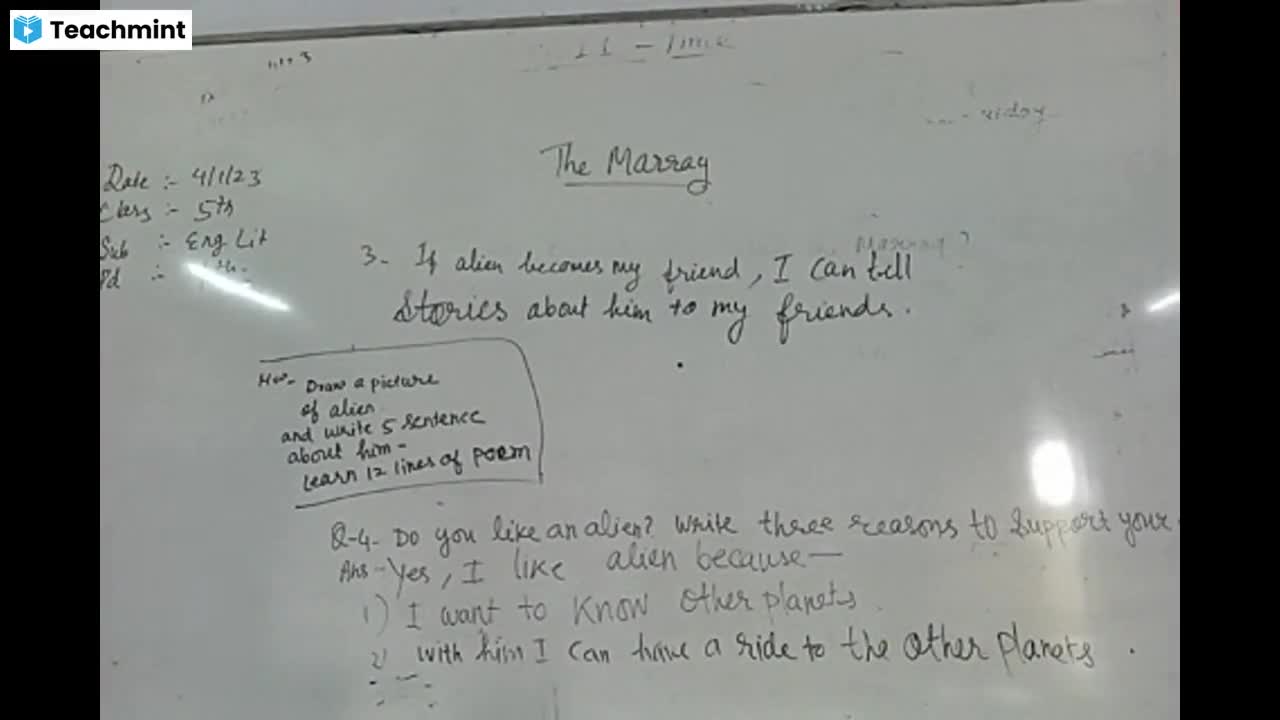 Teachmint
The Marray
Date :- 4/1/23
Class :- 5th
Sub :- Eng Lit
Pd :- th
3- If alien becomes my friend, I can tell
stories about him to my friends.
HW- Draw a picture
of alien
and write 5 sentence
about him -
Learn 12 lines of poem
Q-4- Do you like an alien? Write three reasons to support your
Ans - Yes, I like alien because—
1) I want to know other planets.
2) with him I can have a ride to the other planets.